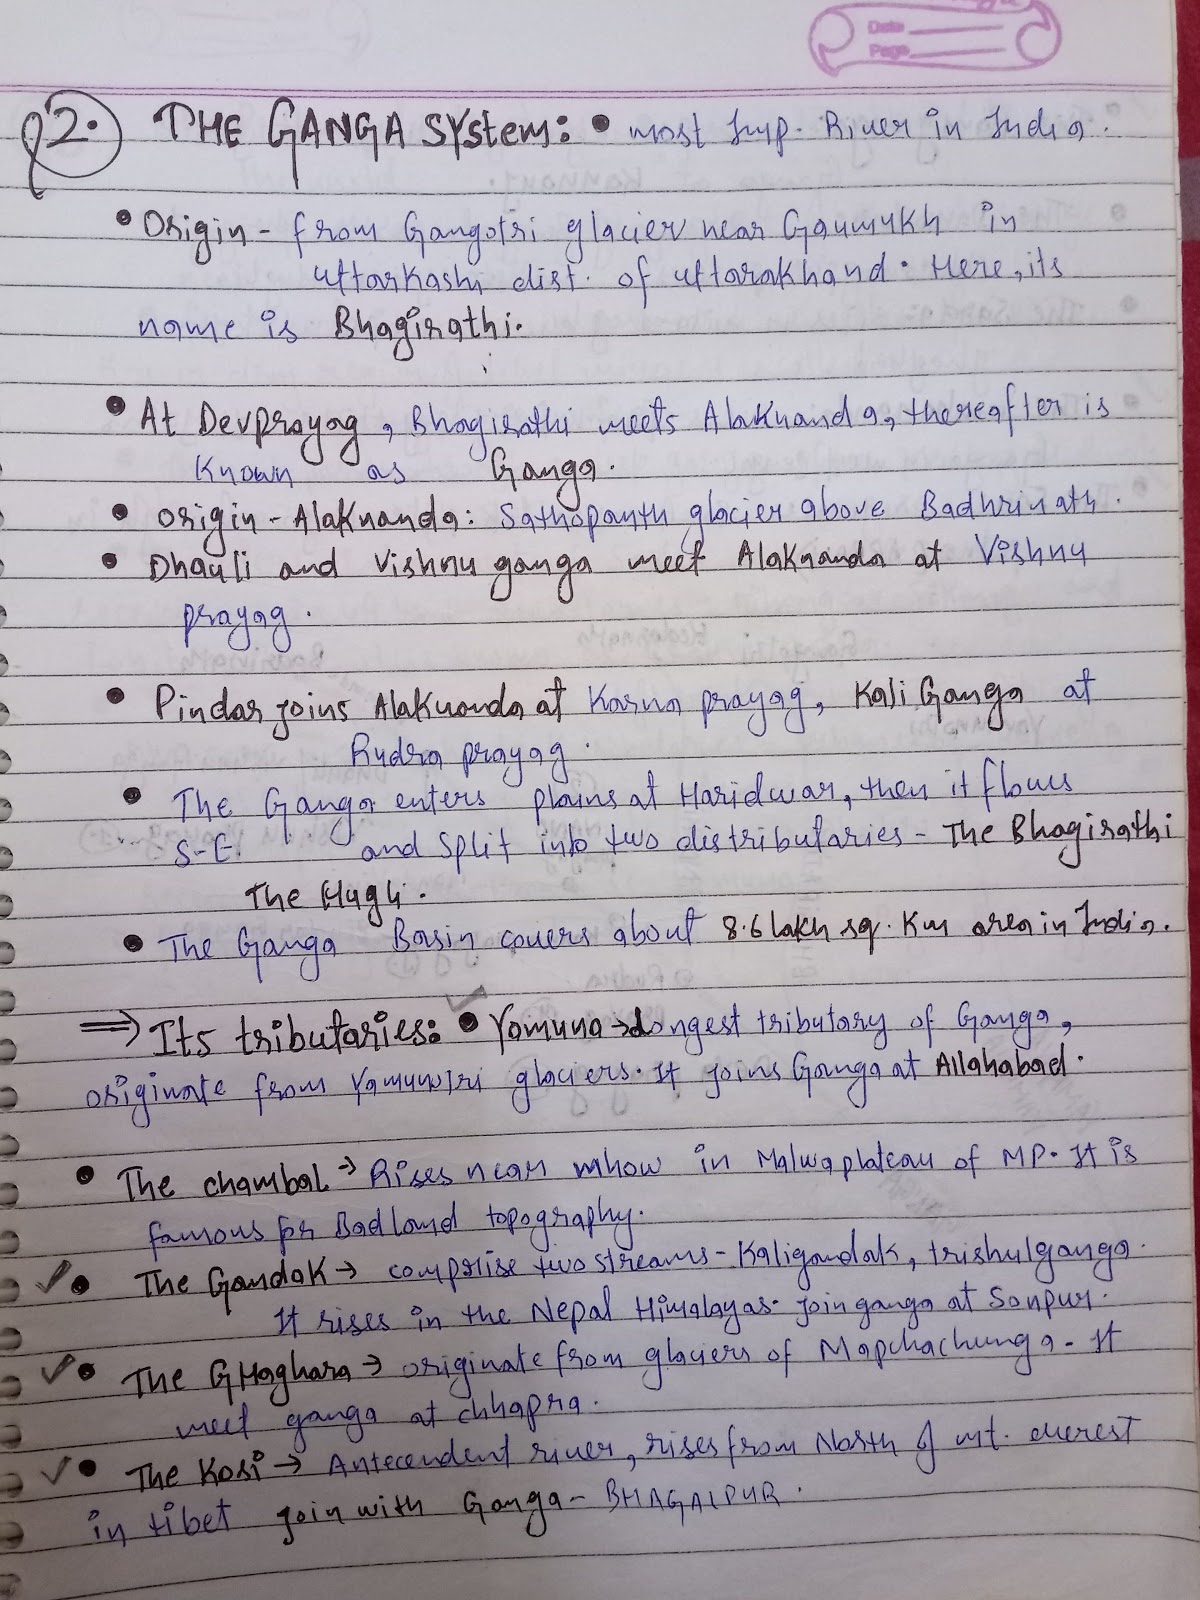 Date
Page
22. THE GANGA SYStem: • most Imp. River in India.
• Origin - from Gangotri glacier near Gaumukh in
uttarkashi dist. of uttarakhand. Here, its
name is Bhagirathi.
• At Devprayag, Bhagirathi meets Alaknanda, thereafter is
known as Ganga.
• Origin - Alaknanda: Sathopanth glacier above Badhrinath.
• Dhauli and Vishnu ganga meet Alaknanda at Vishnu
prayag.
• Pindar joins Alaknanda at Karna prayag, Kali Ganga at
Rudra prayag.
• The Ganga enters plains at Haridwar, then it flows
S-E. and Split into two distributaries - The Bhagirathi
The Hugli.
• The Ganga Basin covers about 8.6 lakh sq. Km area in India.
⇒ Its tributaries: • Yamuna → Longest tributary of Ganga,
originate from Yamunotri glaciers. It joins Ganga at Allahabad.
• The chambal → Rises near mhow in Malwa plateau of MP. It is
famous for Badland topography.
• The Gandak → comprise two streams - Kaligandak, trishulganga.
It rises in the Nepal Himalayas. join ganga at Sonpur.
• The GHaghara → originate from glaciers of Mapchachunga. It
meet ganga at chhapra.
• The Kosi → Antecendent river, rises from North of mt. everest
in tibet join with Ganga - BHAGALPUR.